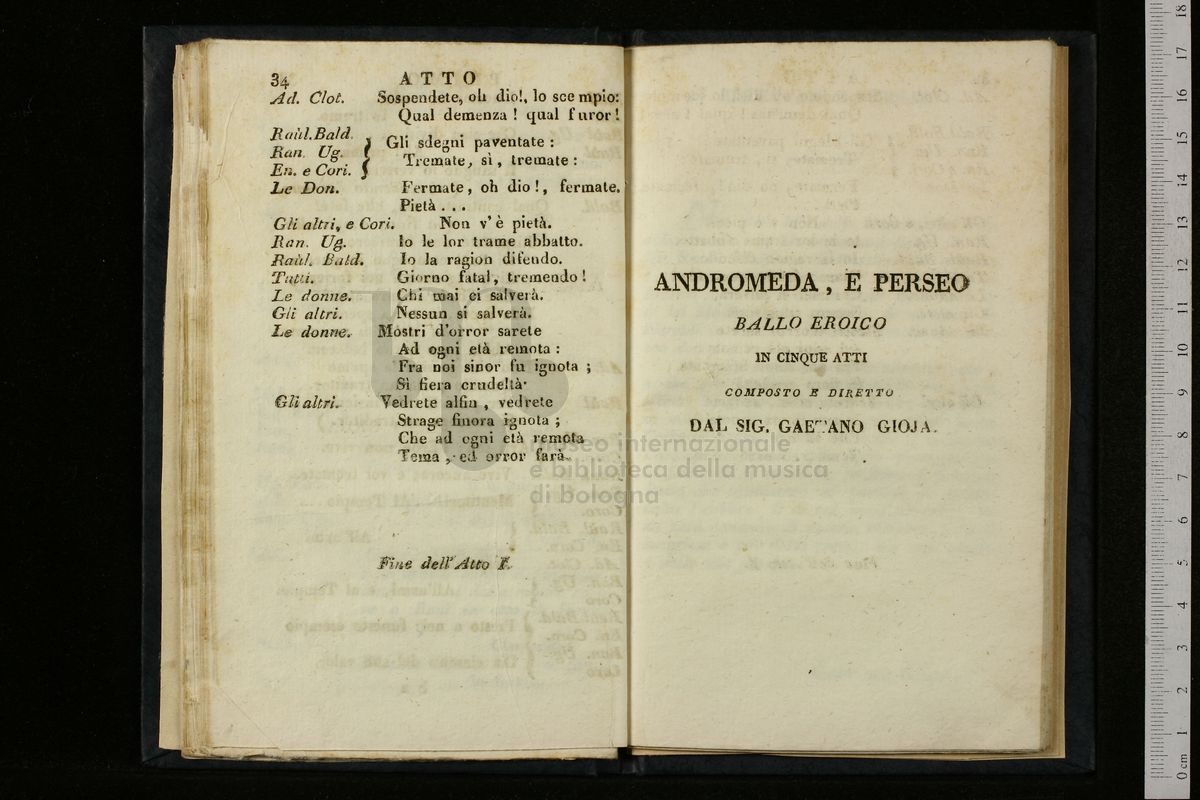 34 ATTO
Ad. Clot. Sospendete, oh dio!, lo scempio:
Qual demenza! qual furor!
Raùl. Bald.
Ran. Ug.
En. e Cori.
Gli sdegni paventate:
Tremate, sì, tremate:
Le Don. Fermate, oh dio!, fermate.
Pietà...
Gli altri, e Cori. Non v'è pietà.
Ran. Ug. Io le lor trame abbatto.
Raùl. Bald. Io la ragion difendo.
Tutti. Giorno fatal, tremendo!
Le donne. Chi mai ci salverà.
Gli altri. Nessun si salverà.
Le donne. Mostri d'orror sarete
Ad ogni età remota:
Fra noi sinor fu ignota;
Sì fiera crudeltà.
Gli altri. Vedrete alfin, vedrete
Strage finora ignota;
Che ad ogni età remota
Tema, ed orror farà.
Fine dell'Atto I.
ANDROMEDA, E PERSEO
BALLO EROICO
IN CINQUE ATTI
COMPOSTO E DIRETTO
DAL SIG. GAETANO GIOJA.
museo internazionale
e biblioteca della musica
di bologna
0 cm 1 2 3 4 5 6 7 8 9 10 11 12 13 14 15 16 17 18